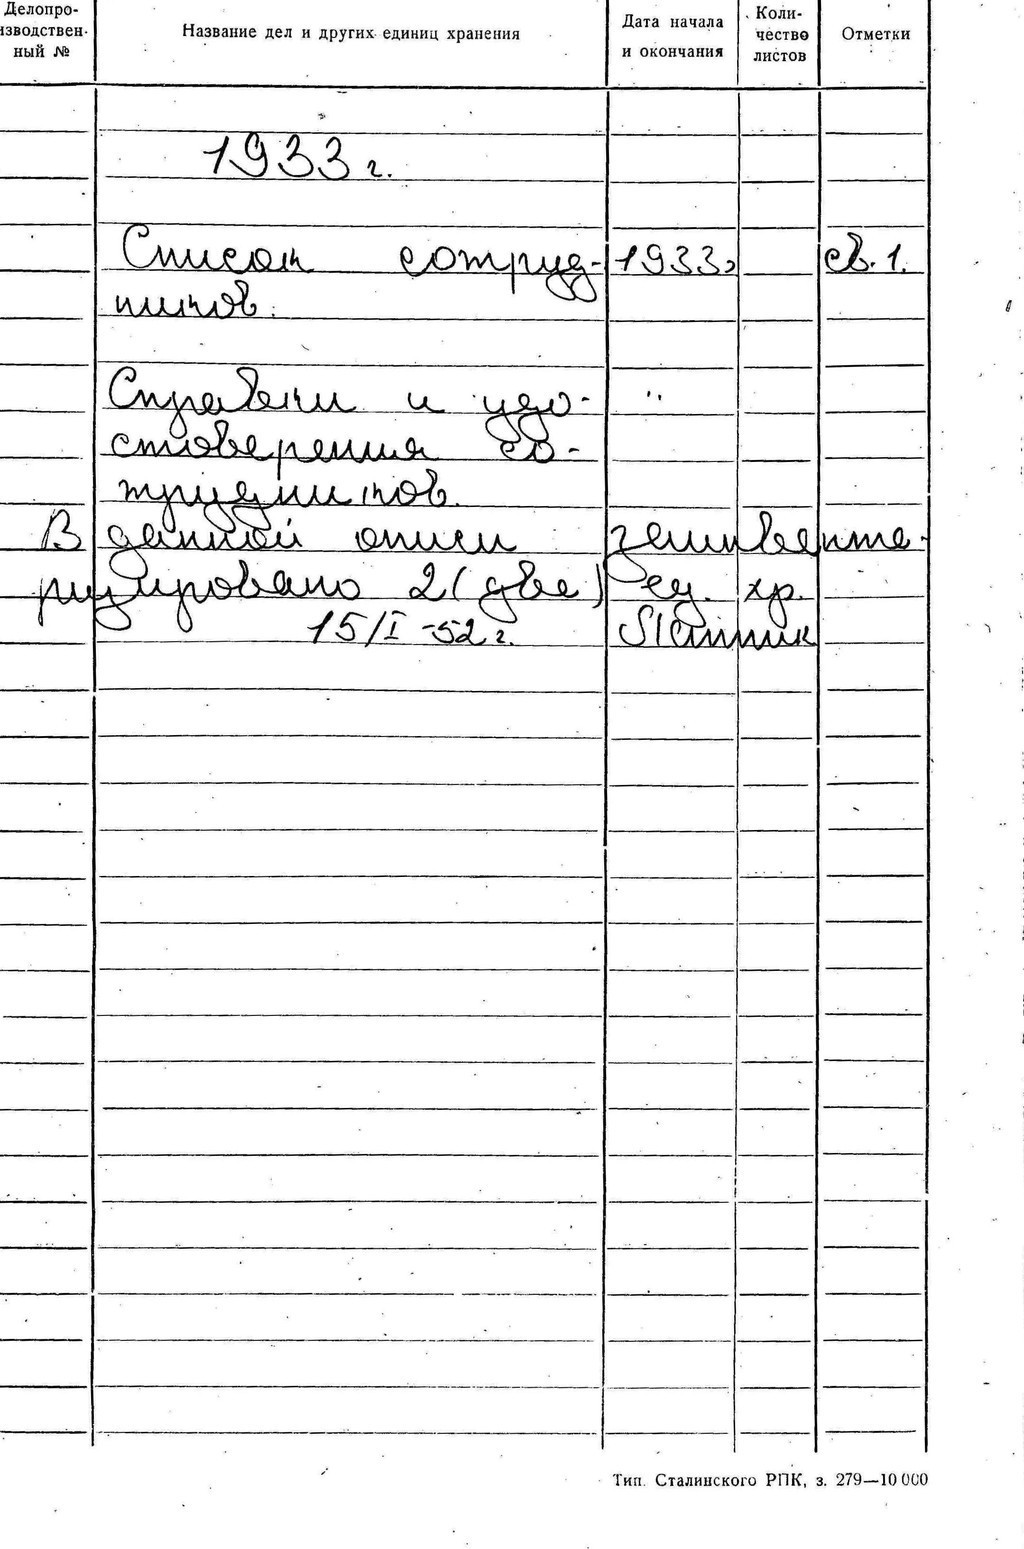 Делопро-
изводствен-
ный №
Название дел и других единиц хранения
Дата начала
и окончания
Коли-
чество
листов
Отметки
1933 г.
Список сотруд- 1933г св. 1.
ников.
Справки и удо- "
стоверения со-
трудников.
В данной описи заинвента-
ризировано 2 (две) ед. хр.
15/I-52 г.
Тип. Сталинского РПК, з. 279—10 000